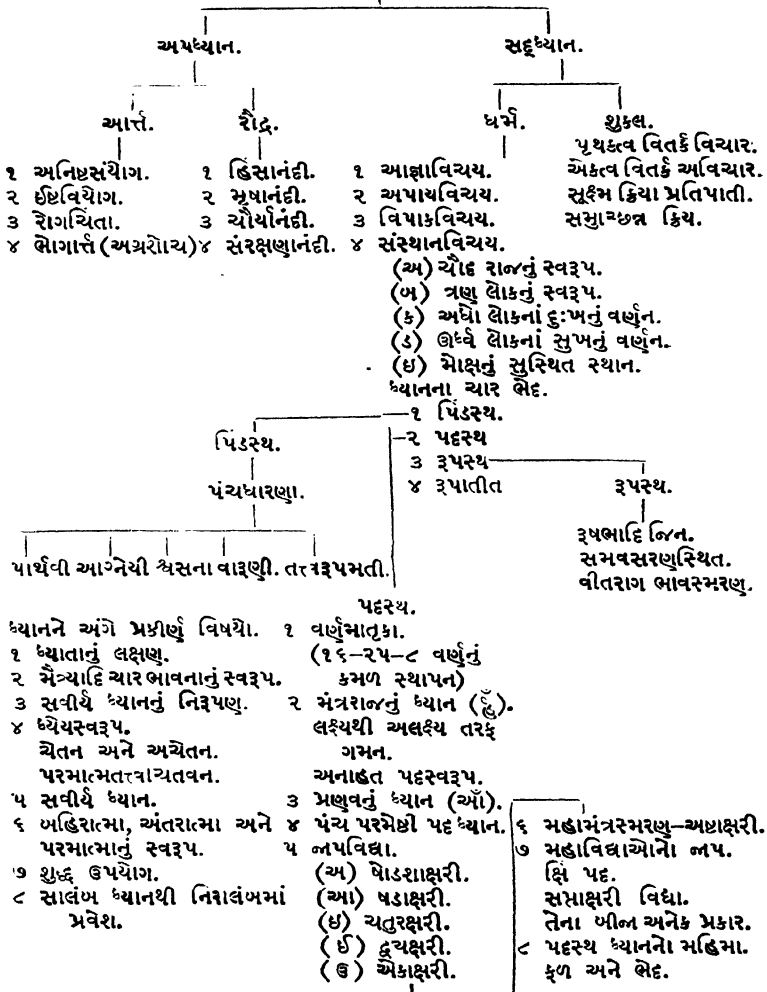 અપધ્યાન.
સદ્ધ્યાન.
આર્ત્ત.
રૌદ્ર.
ધર્મ.
શુકલ.
૧ અનિષ્ટસંયોગ.
૨ ઈષ્ટવિયોગ.
૩ રોગચિંતા.
૪ ભોગાર્ત્ત (અગ્રશોચ)
૧ હિંસાનંદી.
૨ મૃષાનંદી.
૩ ચૌર્યાનંદી.
૪ સંરક્ષણાનંદી.
૧ આજ્ઞાવિચય.
૨ અપાયવિચય.
૩ વિપાકવિચય.
૪ સંસ્થાનવિચય.
(અ) ચૌદ રાજનું સ્વરૂપ.
(બ) ત્રણ લોકનું સ્વરૂપ.
(ક) અધો લોકનાં દુઃખનું વર્ણન.
(ડ) ઊર્ધ્વ લોકનાં સુખનું વર્ણન.
(ઇ) મોક્ષનું સુસ્થિત સ્થાન.
પૃથકત્વ વિતર્ક વિચાર.
એકત્વ વિતર્ક અવિચાર.
સૂક્ષ્મ ક્રિયા પ્રતિપાતી.
સમુચ્છિન્ન ક્રિય.
ધ્યાનના ચાર ભેદ.
૧ પિંડસ્થ.
૨ પદસ્થ
૩ રૂપસ્થ
૪ રૂપાતીત
પિંડસ્થ.
પંચધારણા.
પાર્થવી આગ્નેયી શ્વસના વારૂણી. તત્ત્વરૂપમતી.
રૂપસ્થ.
રૂષભાદિ જિન.
સમવસરણસ્થિત.
વીતરાગ ભાવસ્મરણ.
ધ્યાનને અંગે પ્રકીર્ણ વિષયો.
૧ ધ્યાતાનું લક્ષણ.
૨ મૈત્ર્યાદિ ચાર ભાવનાનું સ્વરૂપ.
૩ સવીર્ય ધ્યાનનું નિરૂપણ.
૪ ધ્યેયસ્વરૂપ.
ચેતન અને અચેતન.
પરમાત્મતત્ત્વચિંતવન.
૫ સવીર્ય ધ્યાન.
૬ બહિરાત્મા, અંતરાત્મા અને
પરમાત્માનું સ્વરૂપ.
૭ શુદ્ધ ઉપયોગ.
૮ સાલંબ ધ્યાનથી નિરાલંબમાં
પ્રવેશ.
પદસ્થ.
૧ વર્ણમાતૃકા.
(૧૬–૨૫–૮ વર્ણનું
કમળ સ્થાપન)
૨ મંત્રરાજનું ધ્યાન (હ્રઁ).
લક્ષ્યથી અલક્ષ્ય તરફ
ગમન.
અનાહત પદસ્વરૂપ.
૩ પ્રણવનું ધ્યાન (ઑં).
૪ પંચ પરમેષ્ઠી પદ ધ્યાન.
૫ જાપવિદ્યા.
(અ) ષોડશાક્ષરી.
(આ) ષડાક્ષરી.
(ઇ) ચતુરક્ષરી.
(ઈ) દ્વ્યક્ષરી.
(ઉ) એકાક્ષરી.
૬ મહામંત્રસ્મરણ–અષ્ટાક્ષરી.
૭ મહાવિદ્યાઓનો જાપ.
ક્ષિં પદ.
સપ્તાક્ષરી વિદ્યા.
તેના બીજા અનેક પ્રકાર.
૮ પદસ્થ ધ્યાનનો મહિમા.
ફળ અને ભેદ.